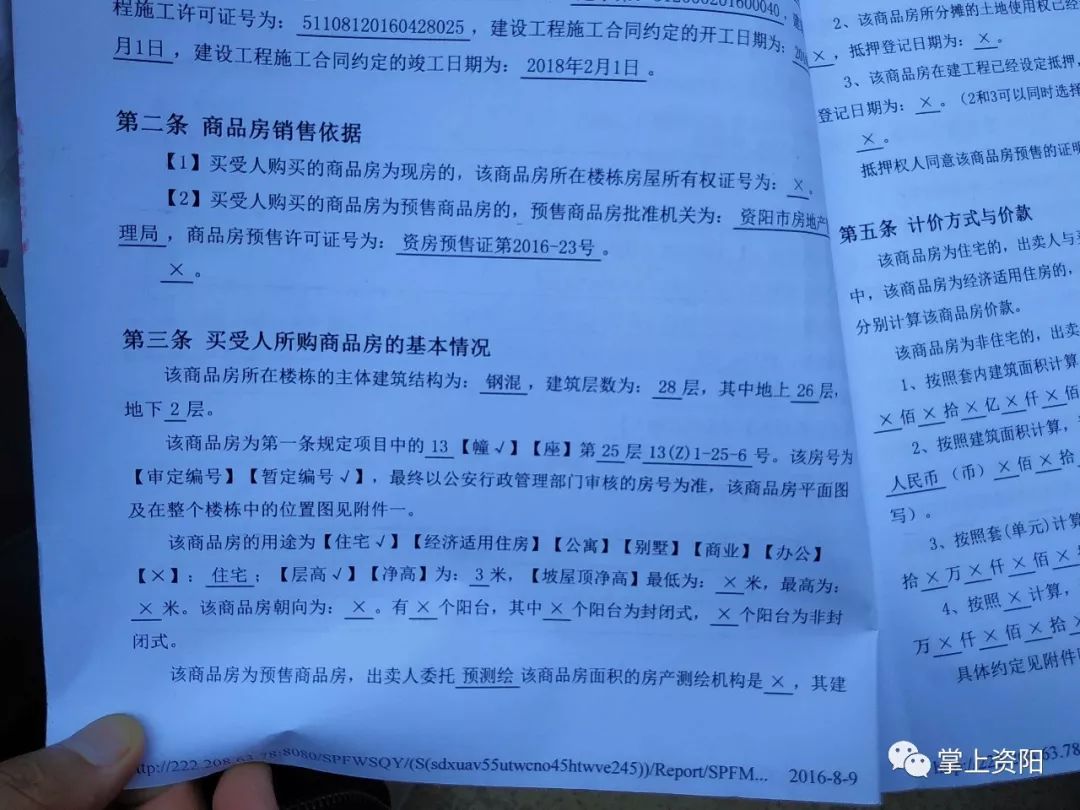 程施工许可证号为： 51108120160428025 ，建设工程施工合同约定的开工日期为：
月1日 ，建设工程施工合同约定的竣工日期为： 2018年2月1日 。
第二条 商品房销售依据
【1】买受人购买的商品房为现房的，该商品房所在楼栋房屋所有权证号为： × 。
【2】买受人购买的商品房为预售商品房的，预售商品房批准机关为： 资阳市房地产
理局 ，商品房预售许可证号为： 资房预售证第2016-23号 。
× 。
第三条 买受人所购商品房的基本情况
该商品房所在楼栋的主体建筑结构为： 钢混 ，建筑层数为： 28 层，其中地上 26 层，
地下 2 层。
该商品房为第一条规定项目中的 13 【幢√】【座】第 25 层 13(Z)1-25-6 号。该房号为
【审定编号】【暂定编号√】，最终以公安行政管理部门审核的房号为准，该商品房平面图
及在整个楼栋中的位置图见附件一。
该商品房的用途为【住宅√】【经济适用住房】【公寓】【别墅】【商业】【办公】
【×】： 住宅 ；【层高√】【净高】为： 3 米，【坡屋顶净高】最低为： × 米，最高为：
× 米。该商品房朝向为： × 。有 × 个阳台，其中 × 个阳台为封闭式， × 个阳台为非封
闭式。
该商品房为预售商品房，出卖人委托 预测绘 该商品房面积的房产测绘机构是 × ，其建
http://222.208.63.78:8080/SPFWSQY/(S(sdxuav55utwcno45htwve245))/Report/SPFM... 2016-8-9
2、该商品房所分摊的土地使用权已经
× ，抵押登记日期为： × 。
3、该商品房在建工程已经设定抵押，
登记日期为： × 。（2和3可以同时选择
× 。
抵押权人同意该商品房预售的证明
第五条 计价方式与价款
该商品房为住宅的，出卖人与
中，该商品房为经济适用住房的，
分别计算该商品房价款。
该商品房为非住宅的，出卖
1、按照套内建筑面积计算
× 佰 × 拾 × 亿 × 仟 × 佰
2、按照建筑面积计算，
人民币 （币） × 佰 × 拾
写）。
3、按照套(单元)计算
拾 × 万 × 仟 × 佰 ×
4、按照 × 计算，
万 × 仟 × 佰 × 拾
具体约定见附件
掌上资阳